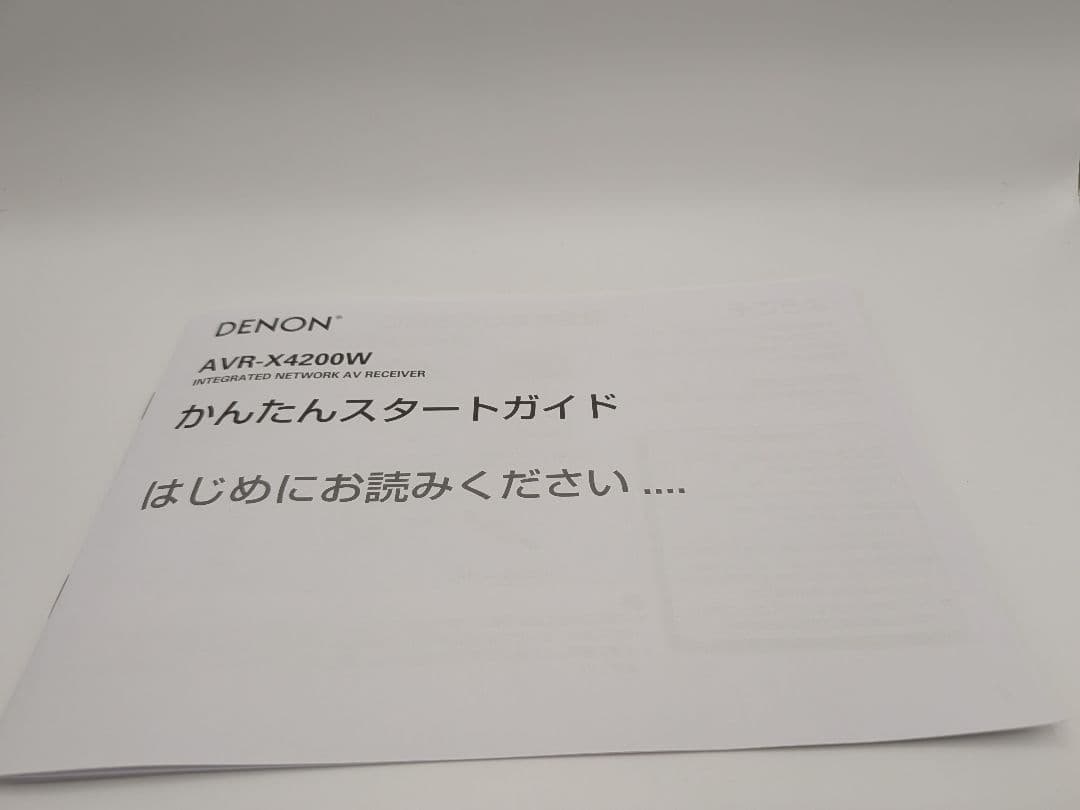 DENON®
AVR-X4200W
INTEGRATED NETWORK AV RECEIVER
かんたんスタートガイド
はじめにお読みください ....